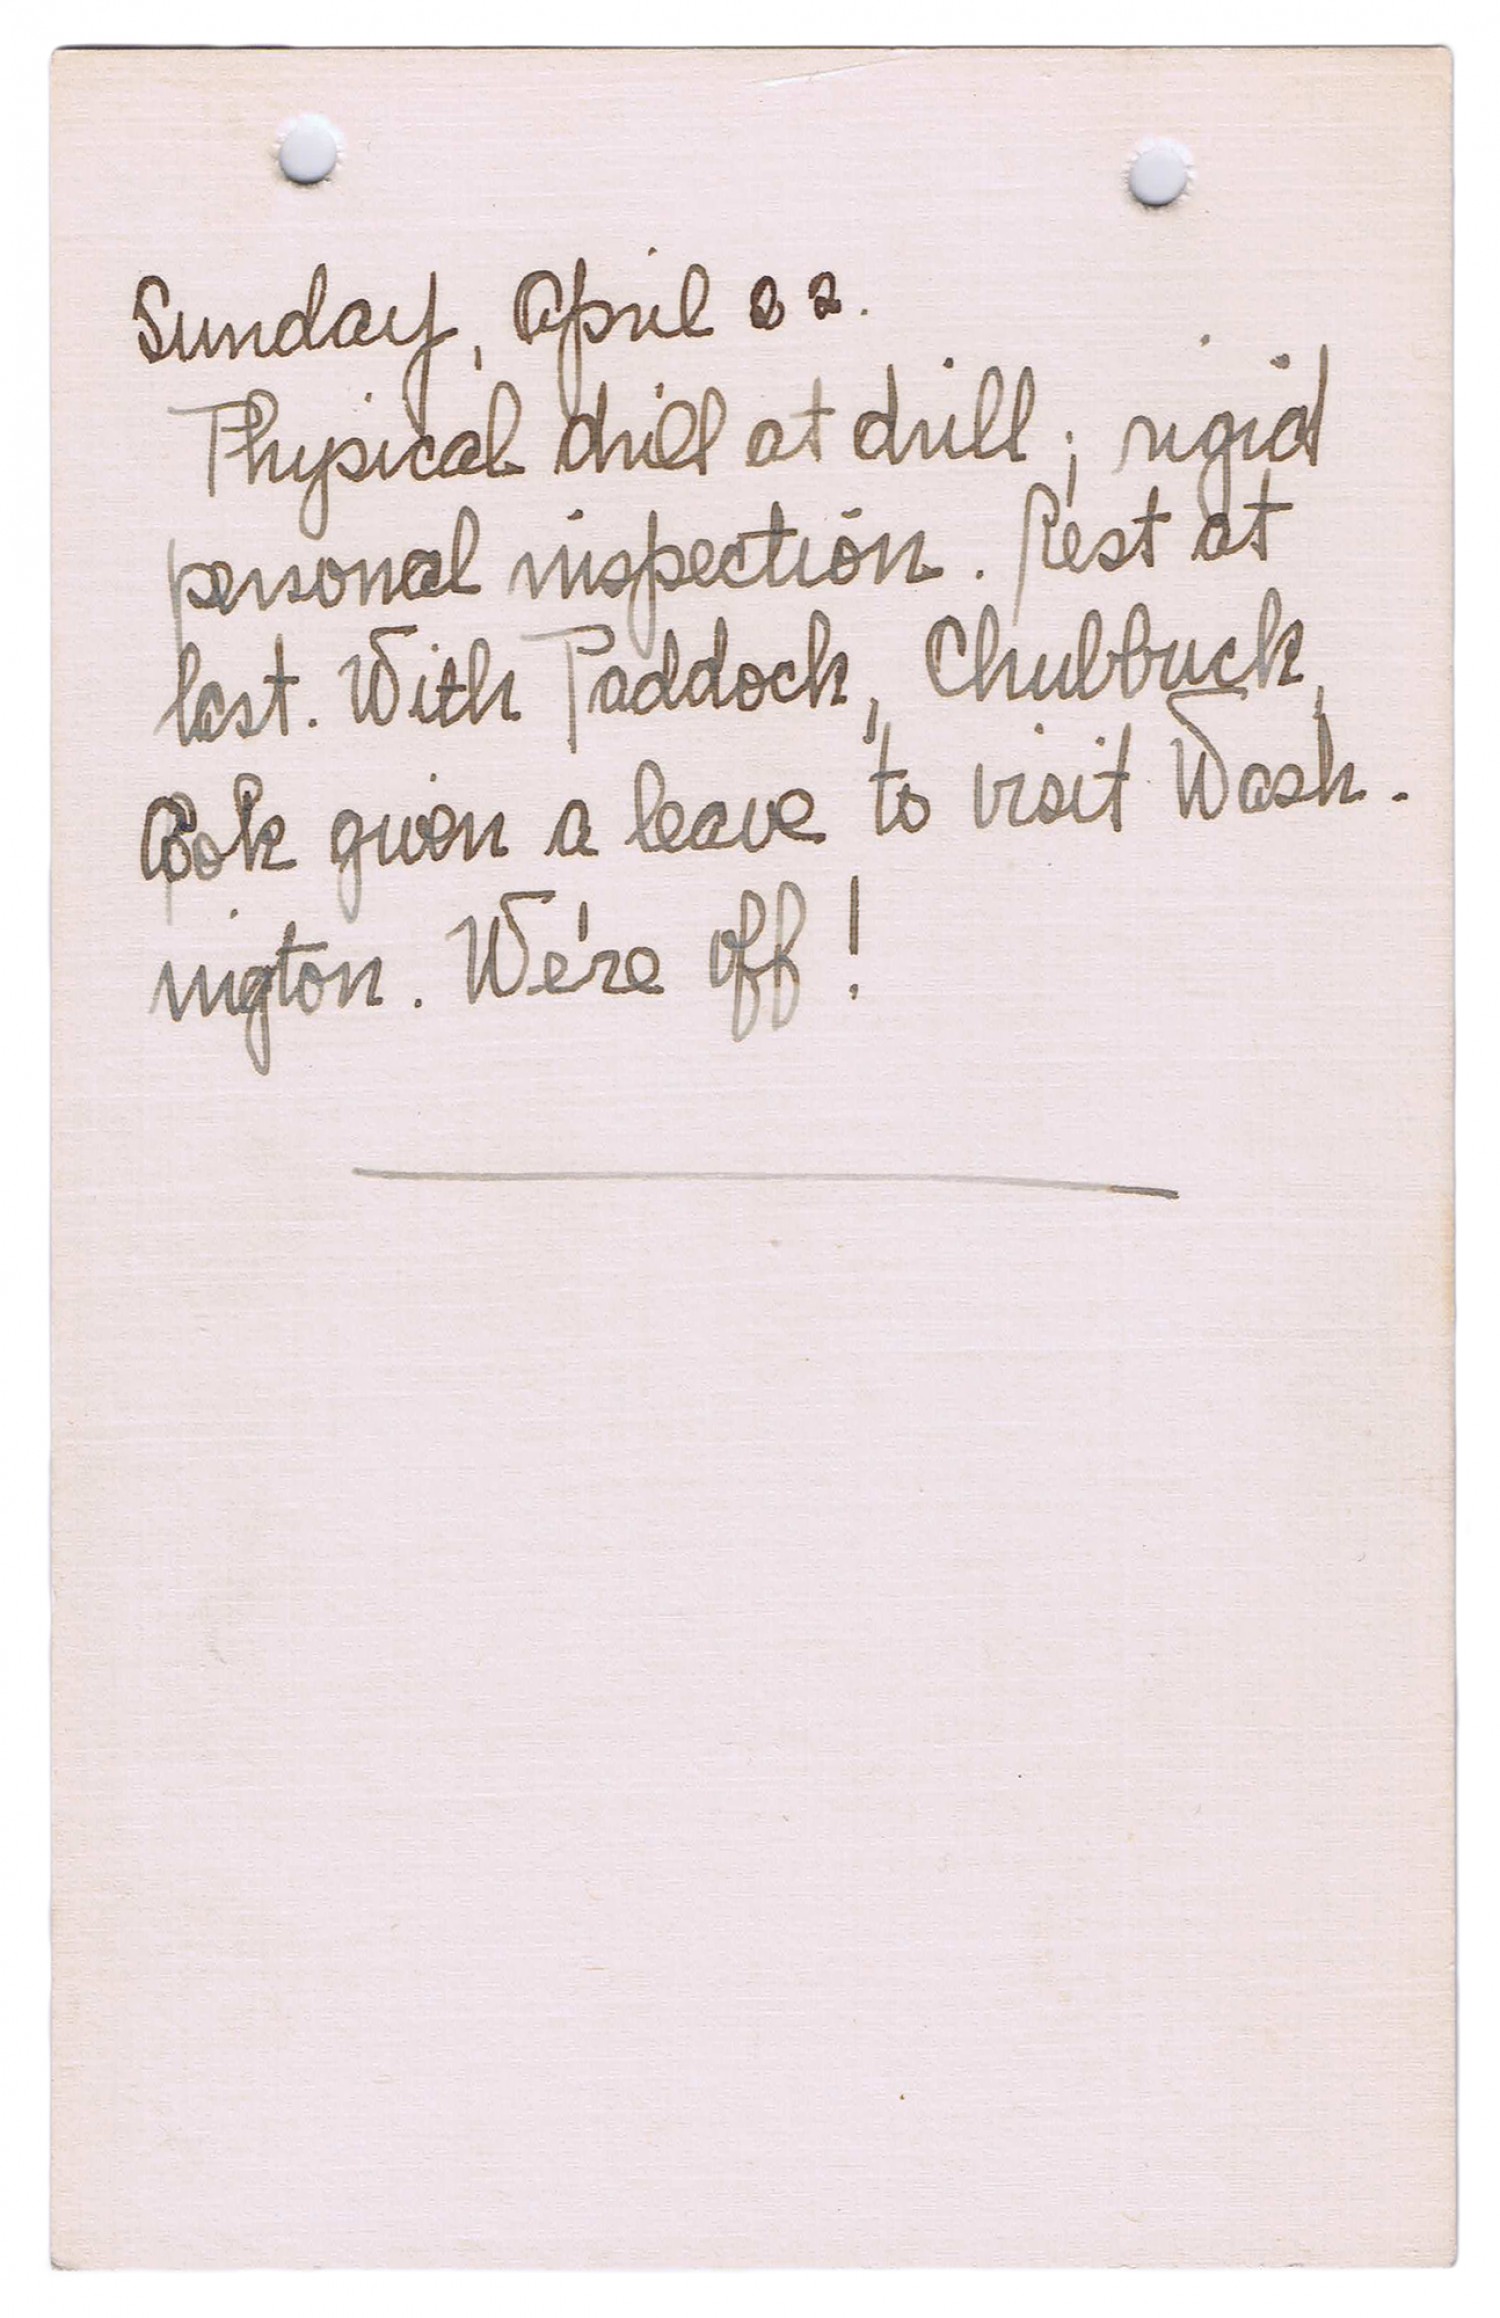 Sunday, April 22.
Physical drill at drill; rigid
personal inspection. Rest at
last. With Paddock, Chubbuck,
Cook given a leave to visit Wash-
ington. We're off!